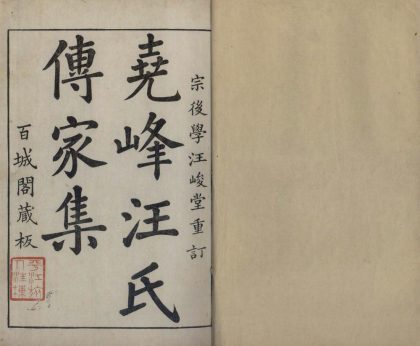 宗後學汪峻堂重訂
堯峰汪氏
傳家集
百城閣藏板